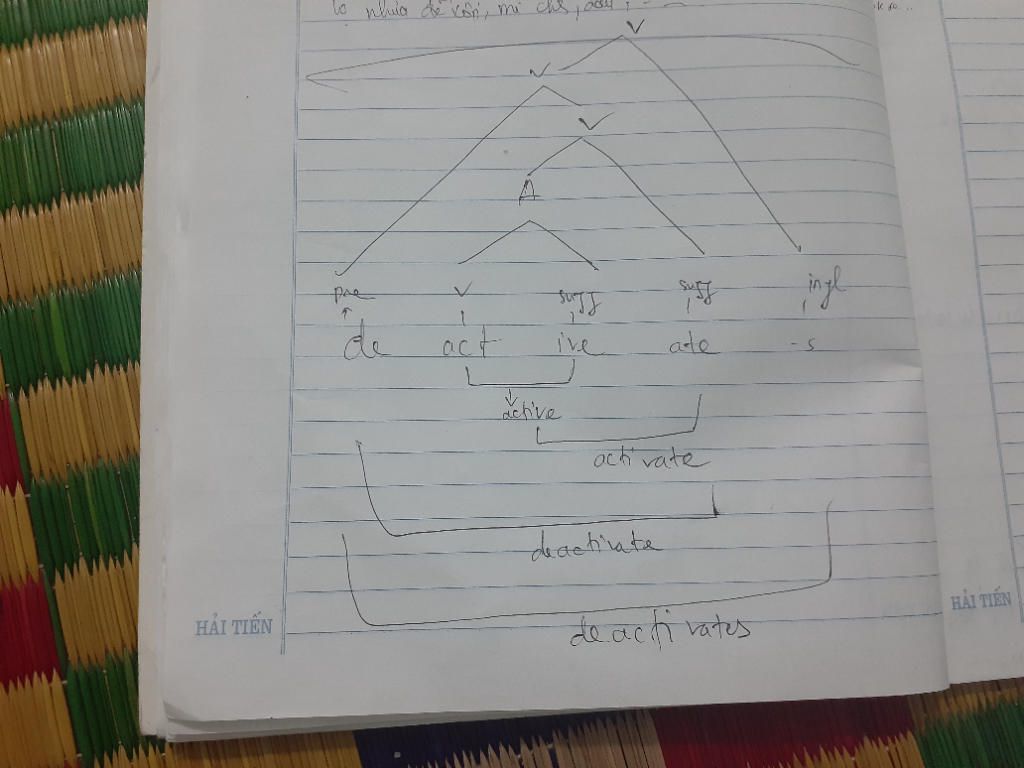 lọ nhựa để
V
V
V
A
pre V suff suff infl
de act ive ate -s
active
activate
deactivate
deactivates
HẢI TIẾN
HẢI TIẾN